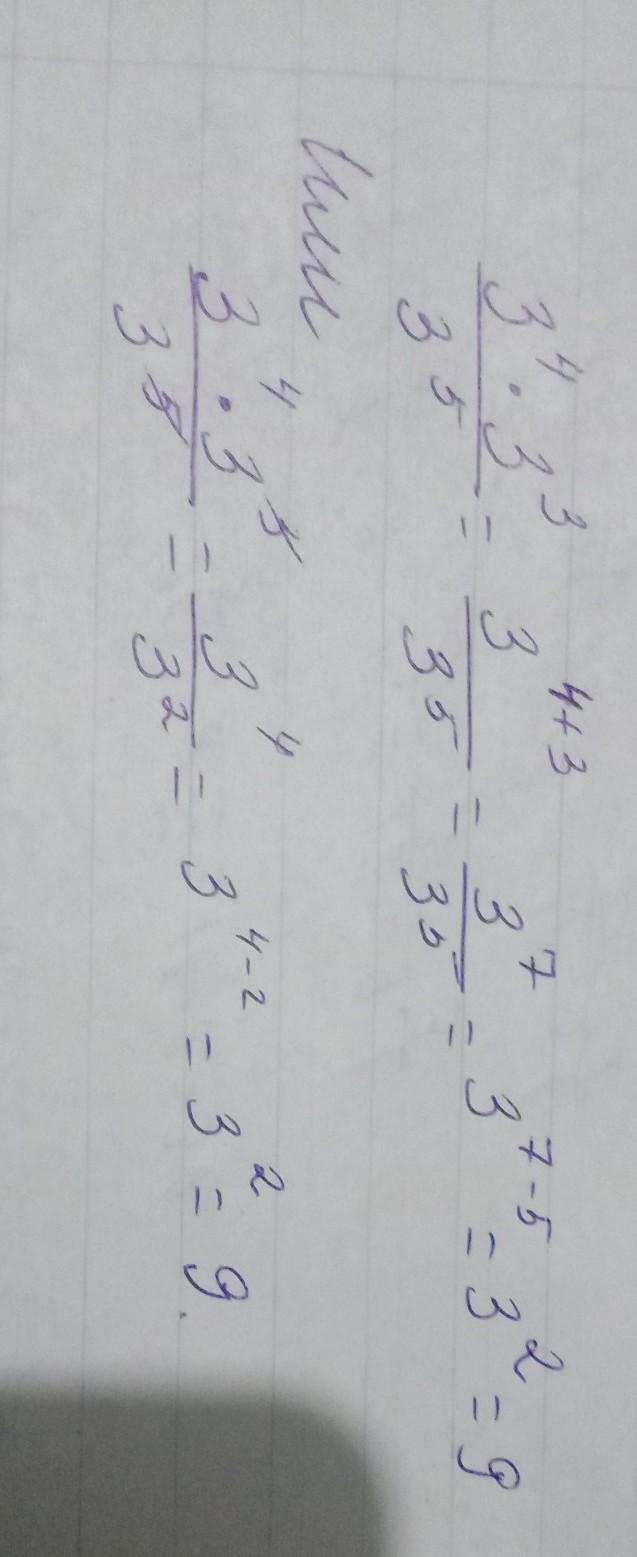 3^4 · 3^3 / 3^5 = 3^{4+3} / 3^5 = 3^7 / 3^5 = 3^{7-5} = 3^2 = 9
Или
3^4 · 3^3 / 3^5 = 3^4 / 3^2 = 3^{4-2} = 3^2 = 9.